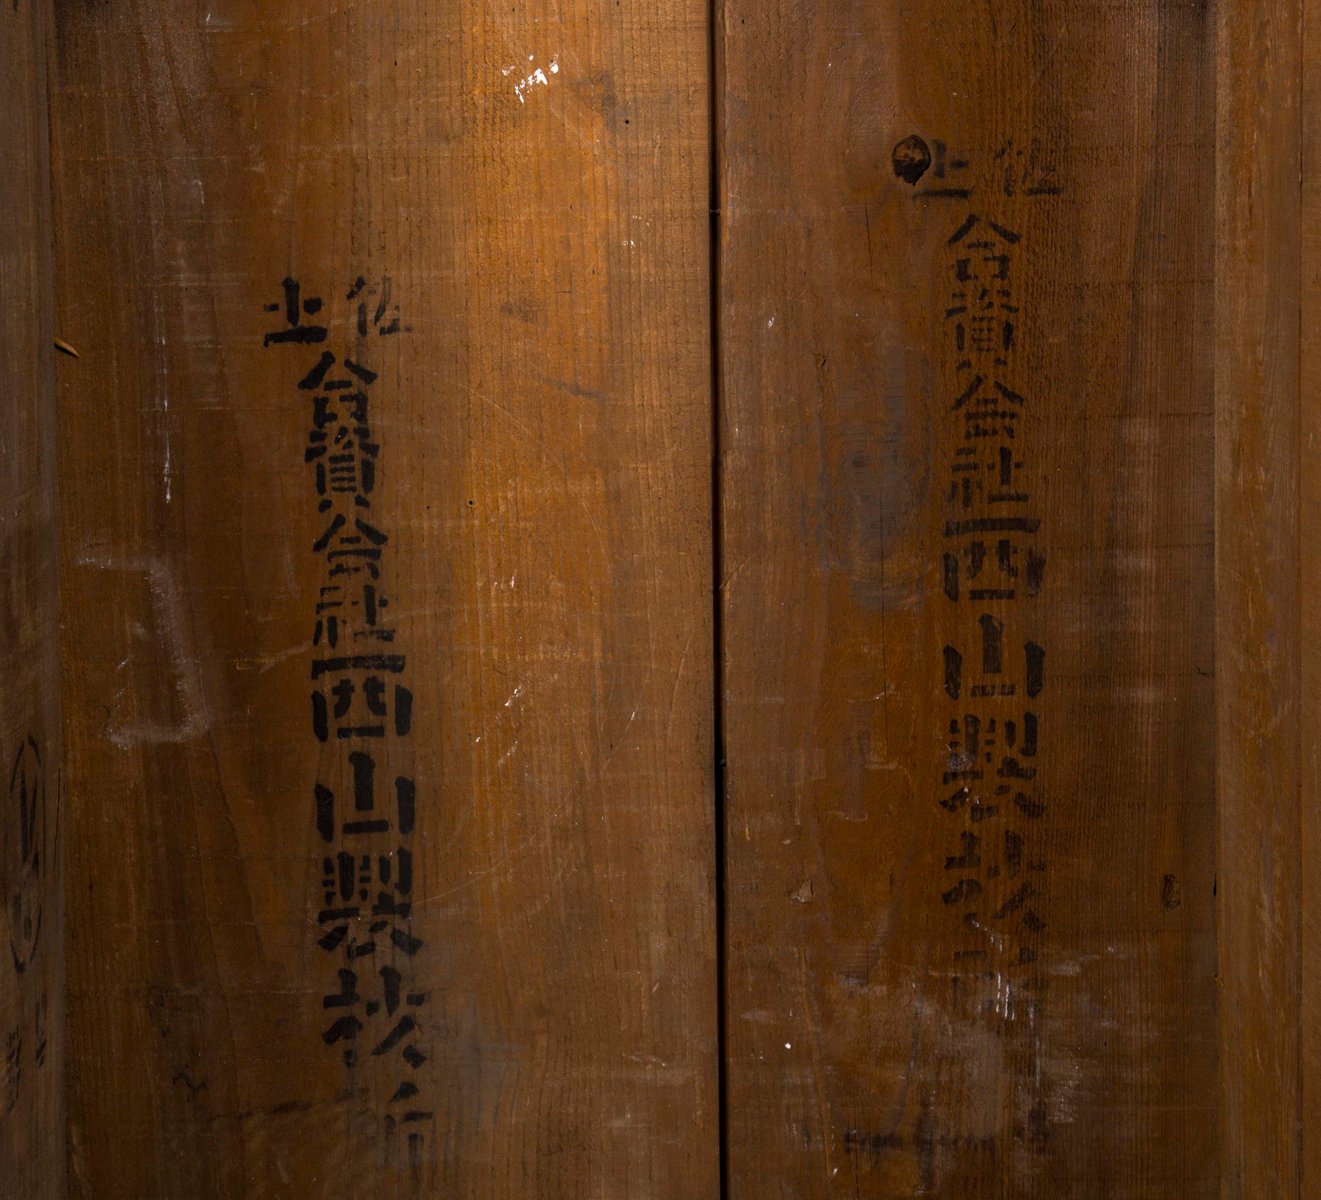 土佐
合資会社西山製材所
土佐
合資会社西山製材所